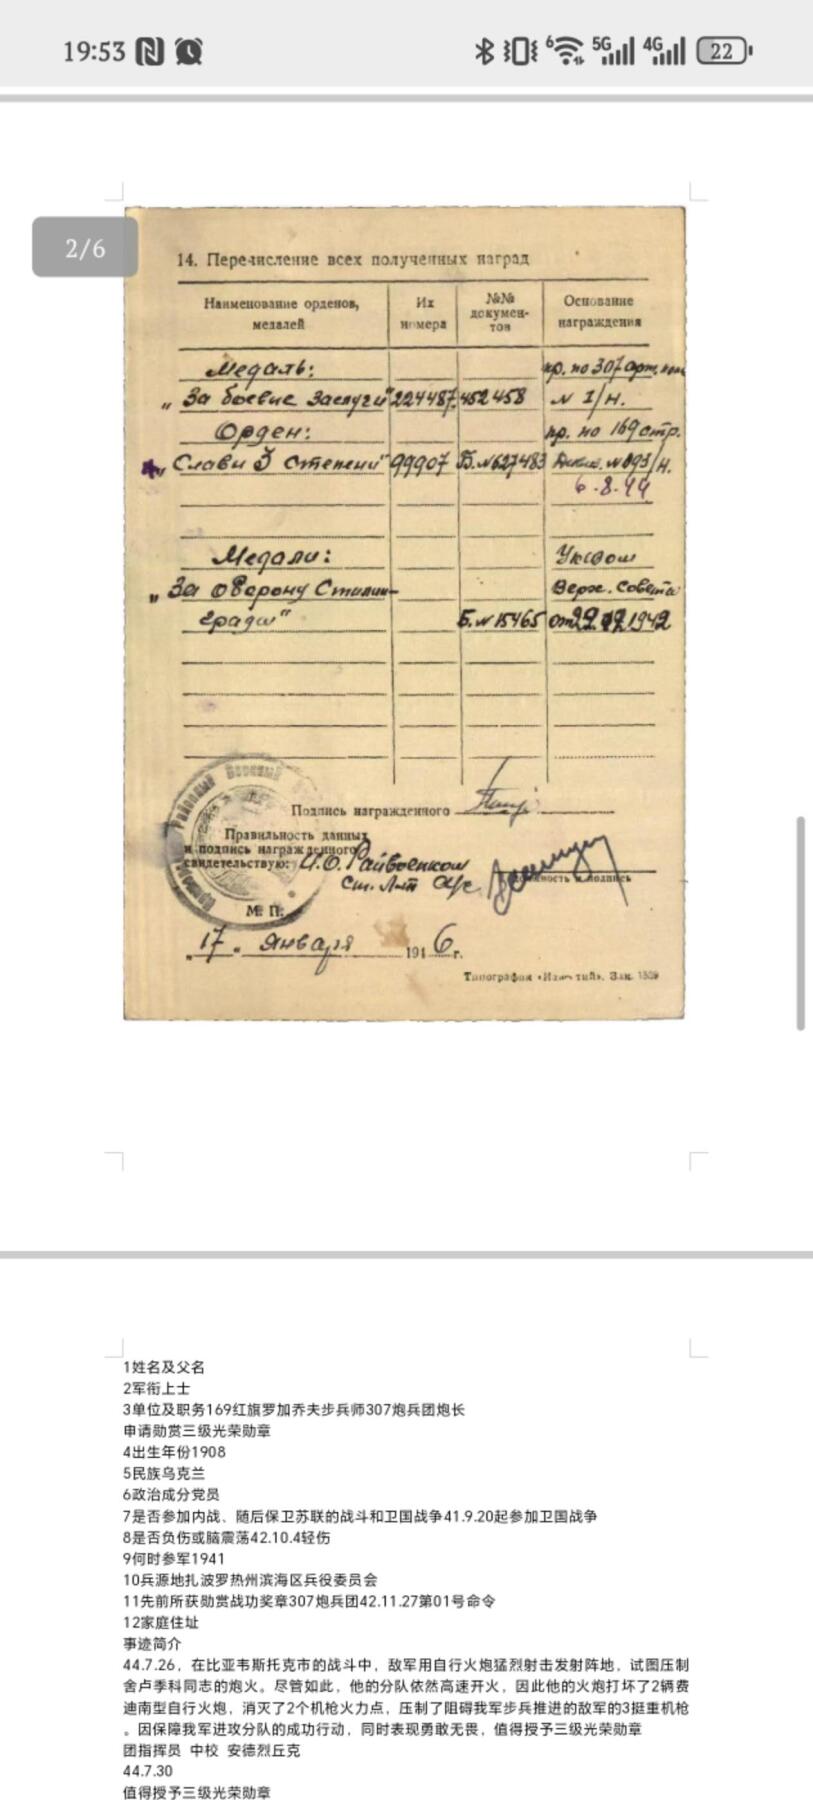 19:53 6 5G 4G 22
2/6
14. Перечисление всех полученных наград
Наименование орденов, медалей Их номера №№ докумен-тов Основание награждения
Медаль: пр. по 307 арт.
„За боевые заслуги" 224487 452458 № 1/н.
Орден: пр. по 169 стр.
„Славы 3 степени" 99907 Б.№627483 №893/н.
6.8.44
Медали: Указом
„За оборону Сталин- Верх. Совета
града" Б.№15465 от 22.12.1942
Подпись награжденного
Правильность данных
и подпись награжденного
свидетельствую: И.О. Райвоенком
Ст. Л-т
должность и подпись
М. П.
„17„ января 1946г.
Типография «Известий». Зак. 1539
1姓名及父名
2军衔上士
3单位及职务169红旗罗加乔夫步兵师307炮兵团炮长
申请勋赏三级光荣勋章
4出生年份1908
5民族乌克兰
6政治成分党员
7是否参加内战、随后保卫苏联的战斗和卫国战争41.9.20起参加卫国战争
8是否负伤或脑震荡42.10.4轻伤
9何时参军1941
10兵源地扎波罗热州滨海区兵役委员会
11先前所获勋赏战功奖章307炮兵团42.11.27第01号命令
12家庭住址
事迹简介
44.7.26，在比亚韦斯托克市的战斗中，敌军用自行火炮猛烈射击发射阵地，试图压制
舍卢季科同志的炮火。尽管如此，他的分队依然高速开火，因此他的火炮打坏了2辆费
迪南型自行火炮，消灭了2个机枪火力点，压制了阻碍我军步兵推进的敌军的3挺重机枪
。因保障我军进攻分队的成功行动，同时表现勇敢无畏，值得授予三级光荣勋章
团指挥员 中校 安德烈丘克
44.7.30
值得授予三级光荣勋章